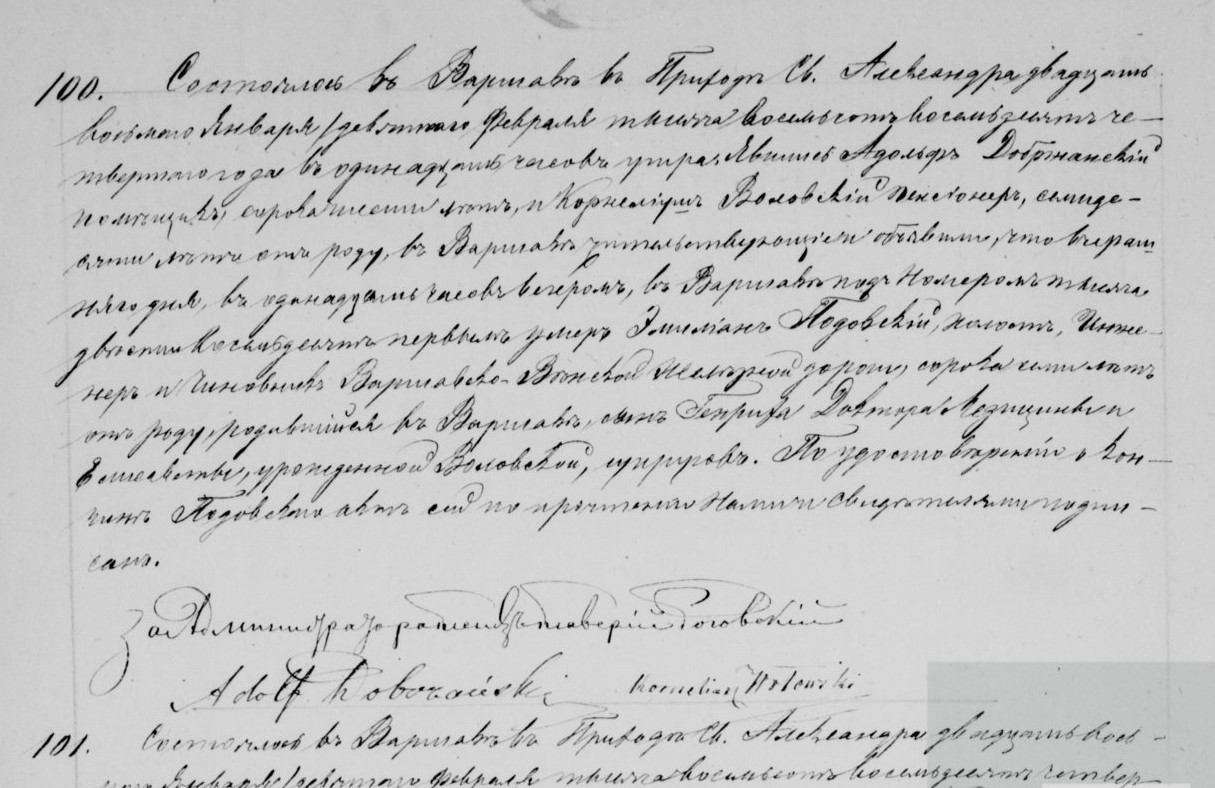 100. Состоялось въ Варшавѣ въ Приходѣ Св. Александра двадцать
восьмаго Января /девятаго Февраля тысяча восемьсотъ восемьдесятъ че-
твертаго года въ одинадцать часовъ утра. Явились Адольфъ Добржанскій
помѣщикъ, сорока шести лѣтъ, и Корнелiушъ Воловскій пенсіонеръ, семиде-
сяти лѣтъ отъ роду, въ Варшавѣ жительствующіе и объявили, что вчераш-
няго дня, въ одинадцать часовъ вечеромъ, въ Варшавѣ подъ Номеромъ тысяча
двѣсти восемьдесятъ первымъ умеръ Эмиліанъ Подовскій, холостъ, Инже-
неръ и Чиновникъ Варшавско-Вѣнской Желѣзной дороги, сорока семи лѣтъ
отъ роду, родившійся въ Варшавѣ, сынъ Генриха Доктора Медицины и
Елисаветы, урожденной Воловской, супруговъ. По удостовѣреніи о кон-
чинѣ Подовскаго актъ сей по прочтеніи Нами и свидѣтелями подпи-
санъ.
За Администратора Ксаверій Роговскій
Adolf Dobrzański Korneliusz Wołowski
101. Состоялось въ Варшавѣ въ Приходѣ Св. Александра двадцать вось-
маго Января /девятаго Февраля тысяча восемьсотъ восемьдесятъ четвер-